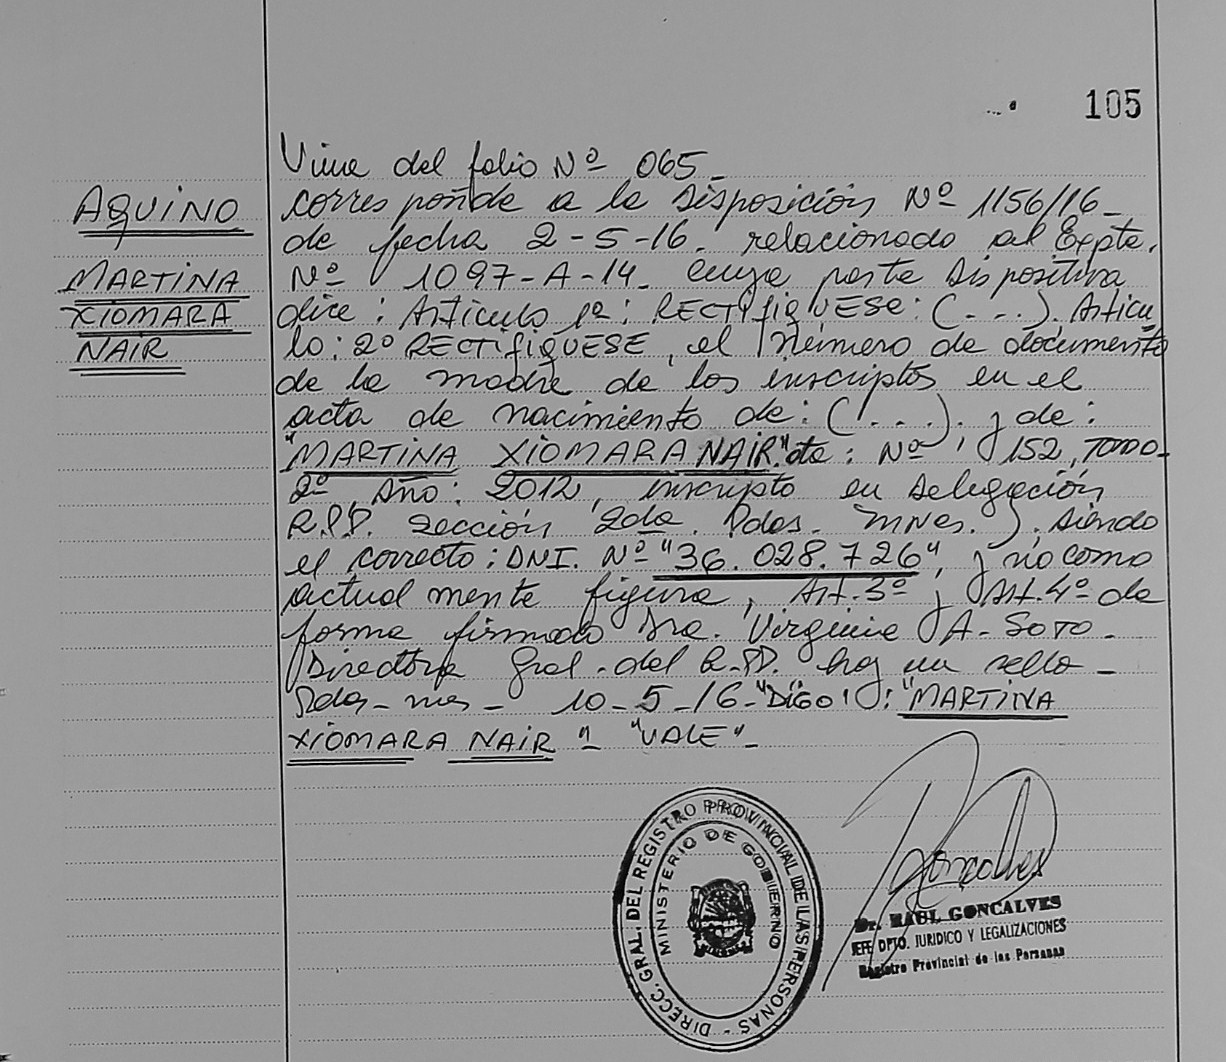 105
AQUINO
MARTINA
XIOMARA
NAIR
Viene del folio Nº 065_
corresponde a la Disposición Nº 1156/16_
de fecha 2-5-16_ relacionado al Expte.
Nº 1097-A-14_ cuya parte dispositiva
dice: Artículo 1º: RECTIFIQUESE: (...). Artícu
lo: 2º RECTIFIQUESE, el número de documento
de la madre de los inscriptos en el
acta de nacimiento de: (...). y de:
"MARTINA XIOMARA NAIR" : Nº 152, TOMO_
2º, Año: 2012, inscripto en Delegación
R.P.P. Sección 2da. Pdas. Mnes. ). siendo
el correcto: DNI. Nº "36.028.726", y no como
actualmente figura, Art. 3º y Art. 4º de
forma firmado Dra. Virginia A. SOTO_
Directora Gral. del R.PP. hay un sello_
Pdas_ mes_ 10_5_16_ "DIGO": "MARTINA
XIOMARA NAIR"_ "VALE"_
DIRECC. GRAL. DEL REGISTRO PROVINCIAL DE LAS PERSONAS -
MINISTERIO DE GOBIERNO
Dr. RAUL GONCALVES
JEFE DPTO. JURIDICO Y LEGALIZACIONES
Registro Provincial de las Personas